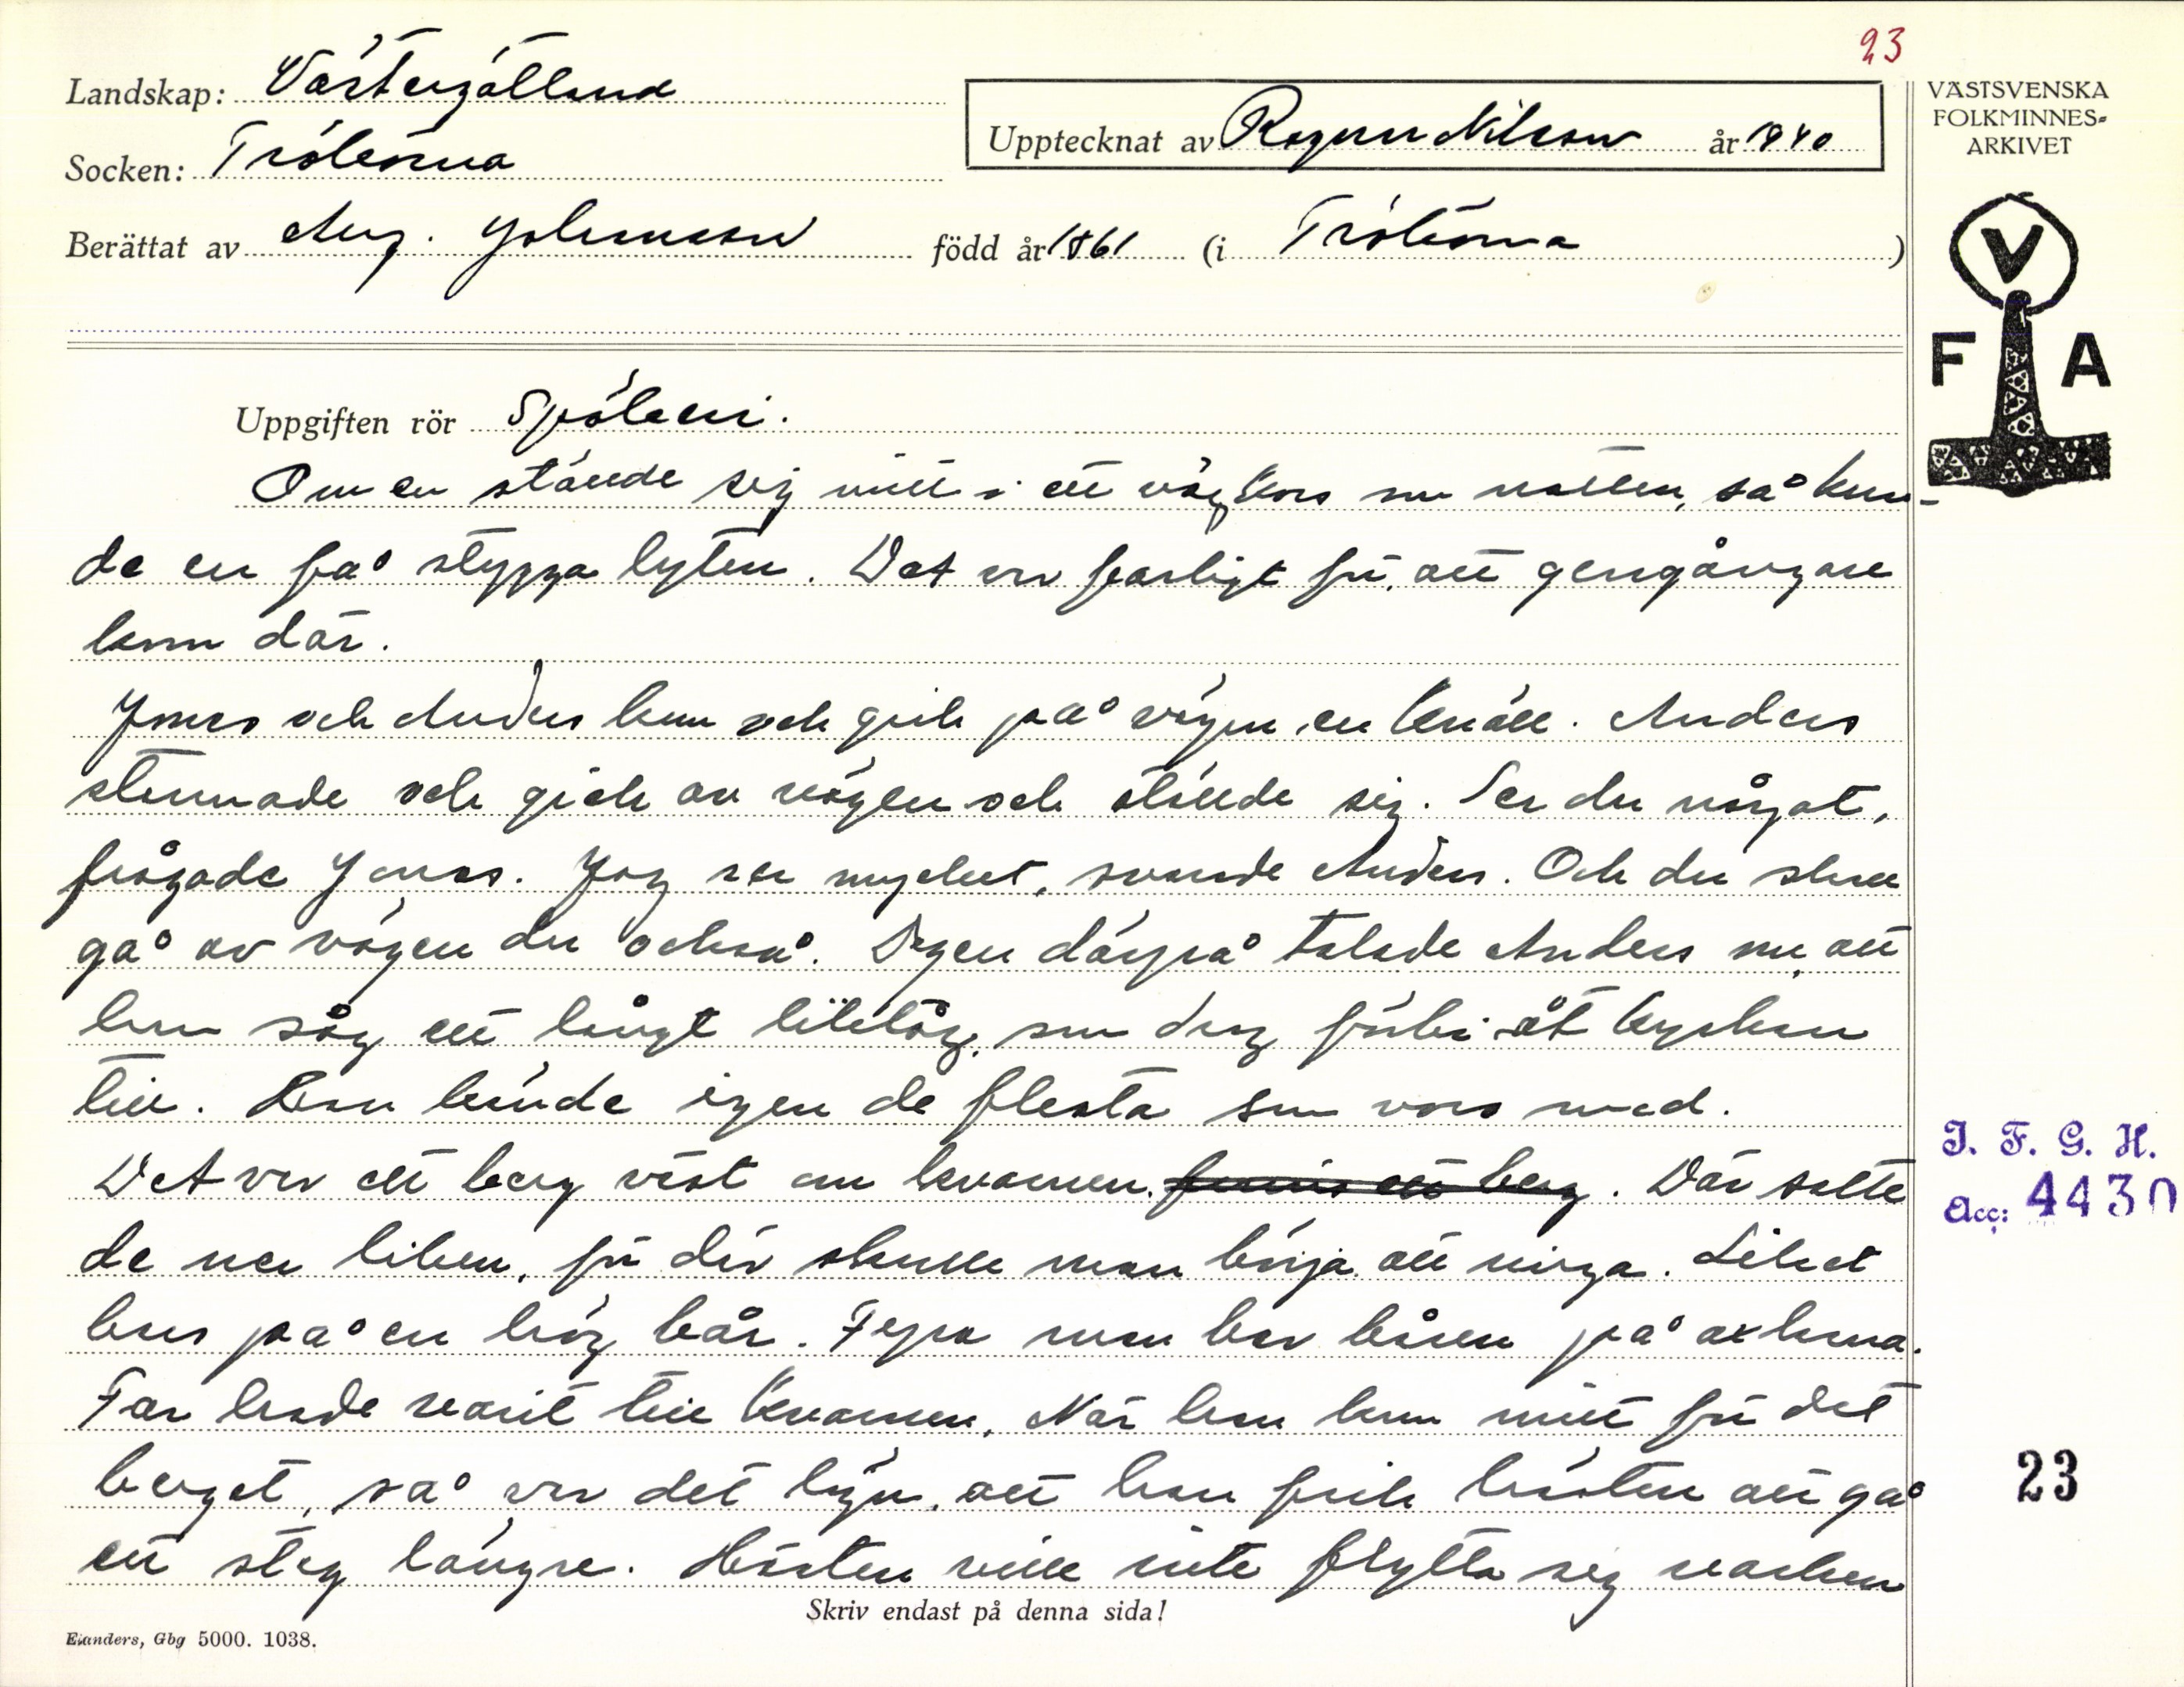 23
Landskap: Västergötland
Socken: Tråvörna
Upptecknat av Ragnar Nilsson år 1940
Berättat av Aug. Johansson född år 1861 (i )
VÄSTSVENSKA
FOLKMINNES-
ARKIVET
V
F A
Uppgiften rör Spökeri.
Om en ställde sig mitt i ett vägkors om natten, så kun-
de en få stygga lyten. Det var farligt för, att gengångare
kom där.
Jonas och Anders kom och gick på vägen en kväll. Anders
stannade och gick av vägen och ställde sig. Ser du något,
frågade Jonas. Jag ser mycket, svarade Anders. Och du skall
gå av vägen du också. Dagen därpå talade Anders om, att
han såg ett långt liktåg, som drog förbi åt kyrkan
till. Han kände igen de flesta som voro med.
Det var ett berg väst om kvarnen. Där satte
de ner liken, för där skulle man börja att ringa. Liket
bars på en hög bår. Fyra man bar båren på axlarna.
Far hade varit till kvarnen. När han kom mitt för det
berget, så var det lögn, att han fick hästen att gå
ett steg längre. Hästen ville inte flytta sig varken
I. F. G. H.
Acc: 4430
23
Skriv endast på denna sida!
Elanders, Gbg 5000. 1038.